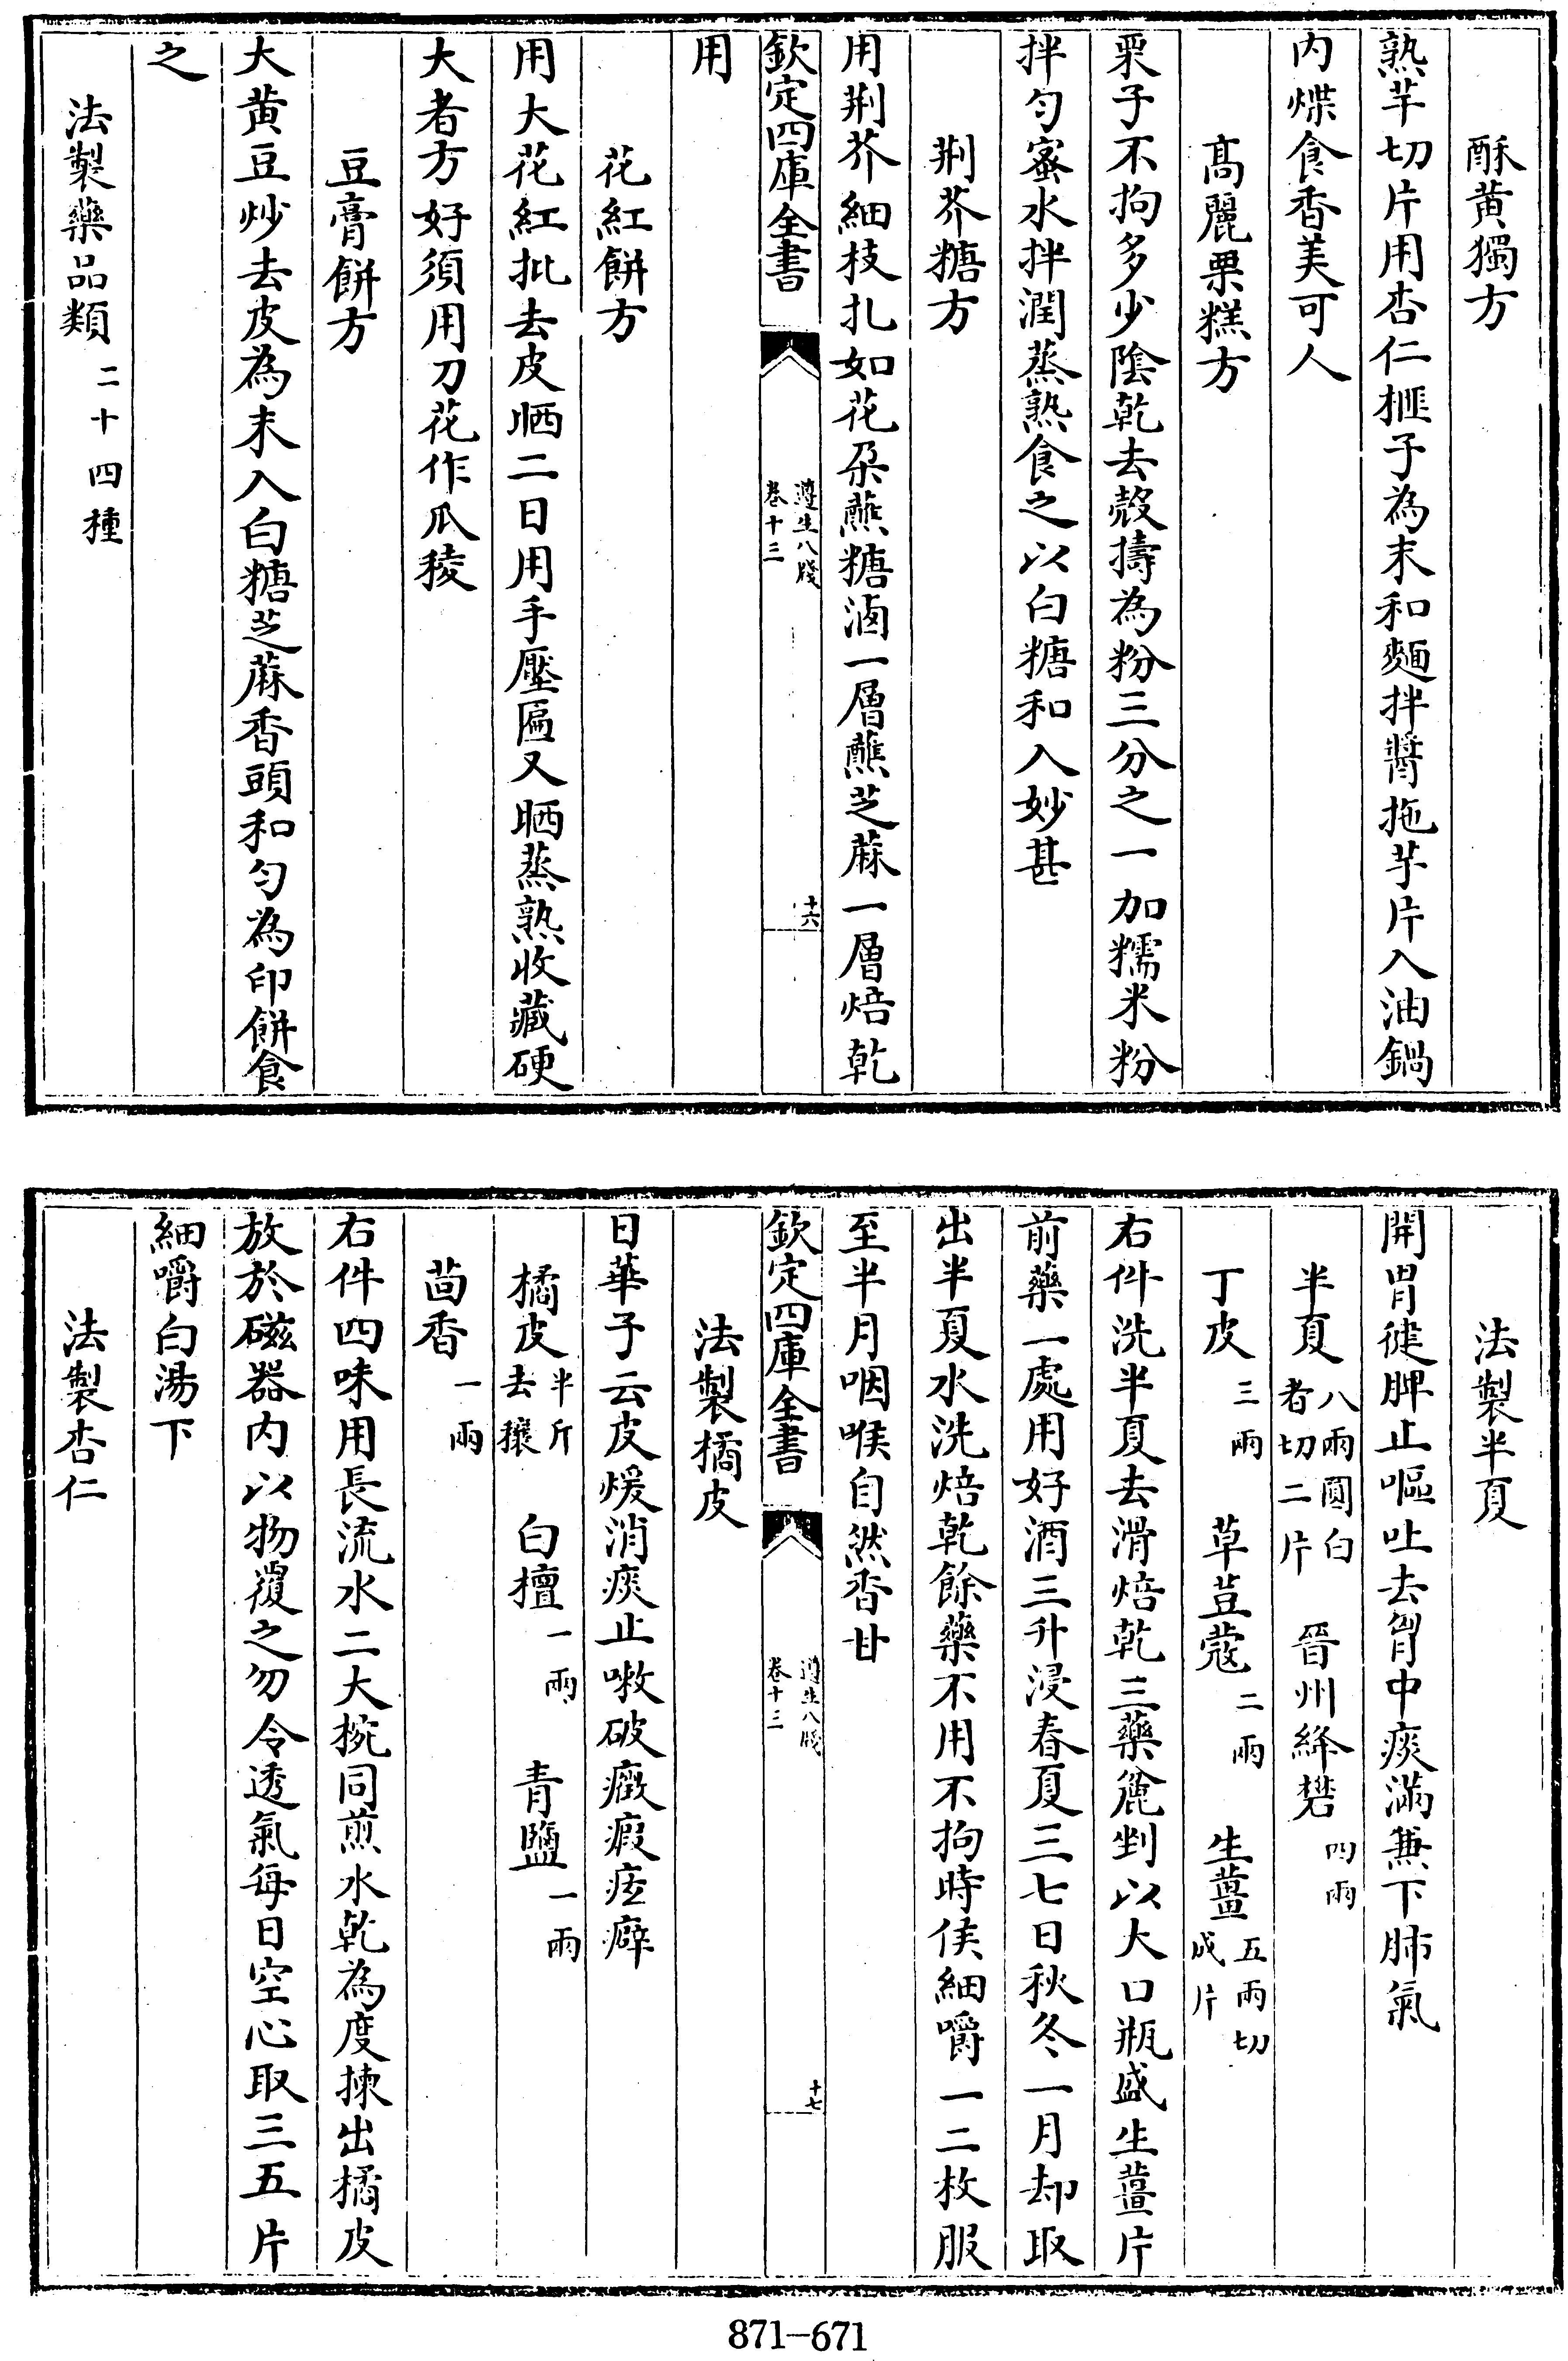 酥黄獨方
熟芋切片用杏仁榧子為末和麵拌醬拖芋片入油鍋
内煠食香美可人
髙麗栗糕方
栗子不拘多少陰乾去殼擣為粉三分之一加糯米粉
拌匀蜜水拌潤蒸熟食之以白糖和入妙甚
荆芥糖方
用荆芥細枝扎如花朶蘸糖滷一層蘸芝蔴一層焙乾
欽定四庫全書
遵生八牋
卷十三
十六
用
花紅餅方
用大花紅批去皮晒二日用手壓匾又晒蒸熟收藏硬
大者方好須用刀花作瓜稜
豆膏餅方
大黄豆炒去皮為末入白糖芝蔴香頭和匀為印餅食
之
法製藥品類二十四種
法製半夏
開胃徤脾止嘔吐去胷中痰滿兼下肺氣
半夏八兩圓白者切二片 晉州絳礬四兩
丁皮三兩 草荳蔻二兩 生薑五兩切成片
右件洗半夏去滑焙乾三藥麄剉以大口瓶盛生薑片
前藥一處用好酒三升浸春夏三七日秋冬一月却取
出半夏水洗焙乾餘藥不用不拘時侯細嚼一二枚服
至半月咽喉自然香甘
欽定四庫全書
遵生八牋
卷十三
十七
法製橘皮
日華子云皮煖消痰止嗽破癥瘕痃癖
橘皮半斤去穰 白檀一兩 青鹽一兩
茴香一兩
右件四味用長流水二大椀同煎水乾為度揀出橘皮
放於磁器内以物覆之勿令透氣每日空心取三五片
細嚼白湯下
法製杏仁
871-671